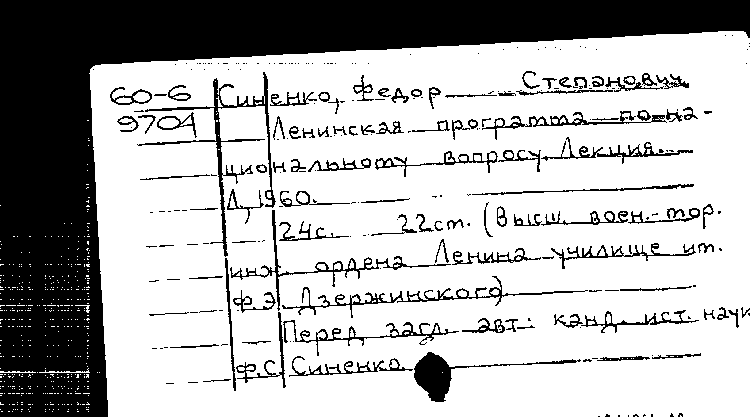 60-6 Синенко, Федор Степанович.
9704 Ленинская программа по на-
циональному вопросу. Лекция.
Л., 1960.
24с. 22см. (Высш. воен.-мор.
инж. ордена Ленина училище им.
Ф.Э. Дзержинского)
Перед загл. авт.: канд. ист. наук
Ф.С. Синенко.